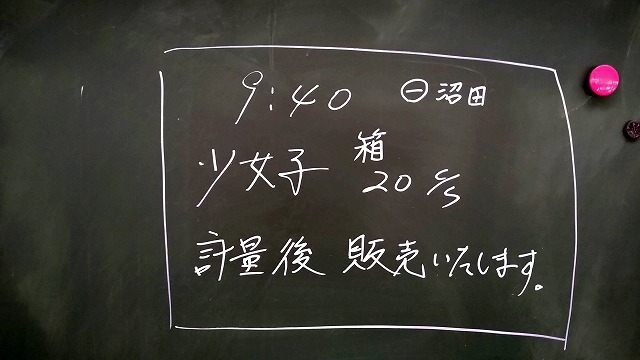 9:40 ㊀沼田
少女子 箱 20 c/s
計量後 販売いたします。